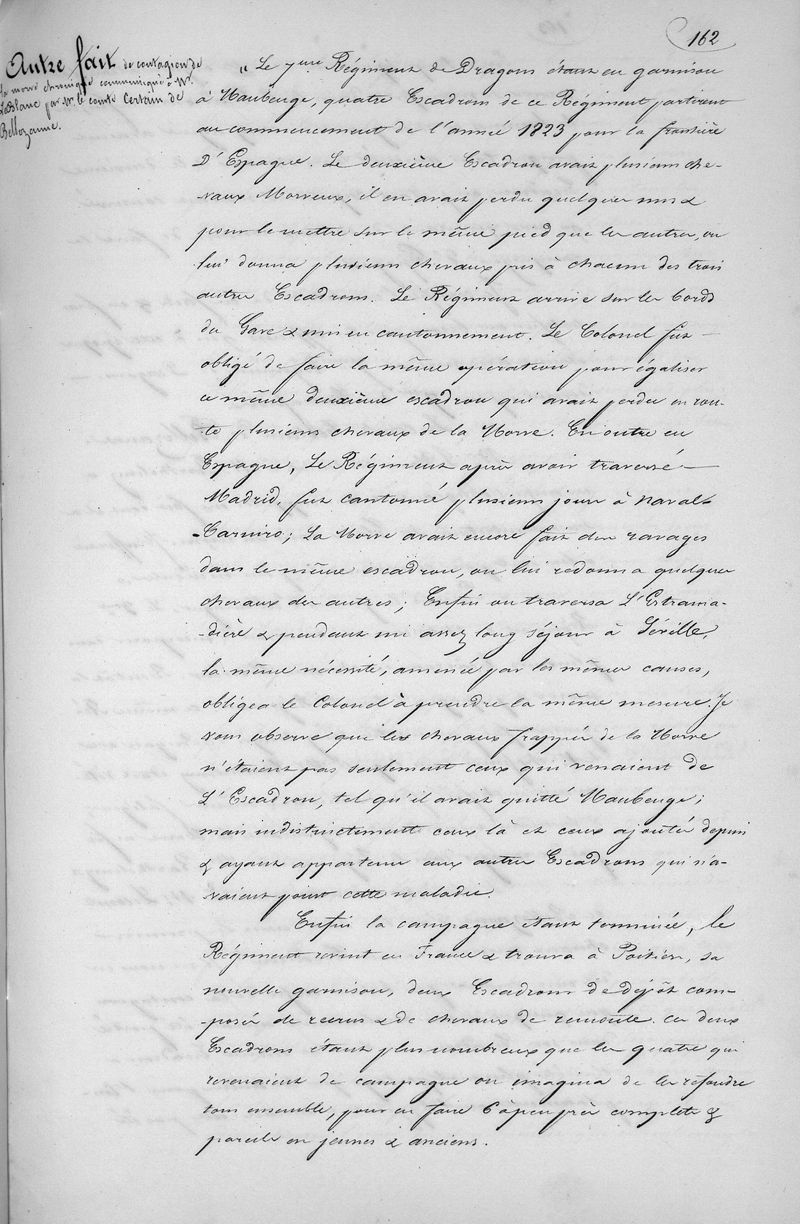 162
Autre fait de contagion de
la morve chronique communiqué à Mr.
Leblanc par Mr. le comte Certain de
Bellozanne.
"Le 7ème Régiment de Dragons étant en garnison
à Maubeuge, quatre Escadrons de ce Régiment partirent
au commencement de l'année 1823 pour la frontière
D'Espagne. Le deuxième Escadron avait plusieurs che-
vaux Morveux, il en avait perdu quelques uns &
pour le mettre sur le même pied que les autres, on
lui donna plusieurs chevaux pris à chacun des trois
autres Escadrons. Le Régiment arrive sur les bords
du Gave & mis en cantonnement. Le Colonel fut
obligé de faire la même opération pour égaliser
ce même deuxième escadron qui avait perdu en rou-
te plusieurs chevaux de la Morve. En outre en
Espagne, Le Régiment après avoir traversé
Madrid, fut cantonné plusieurs jours à Naval-
-Carniro; La Morve avait encore fait des ravages
dans le même escadron, on lui redonna quelques
chevaux des autres; Enfin on traversa L'Estrama-
-dière & pendant un assez long séjour à Séville,
la même nécessité, amenée par les mêmes causes,
obligea le Colonel à prendre la même mesure. Je
vous observe que les chevaux frappés de la Morve
n'étaient pas seulement ceux qui venaient de
L'Escadron, tel qu'il avait quitté Maubeuge;
mais indistinctement ceux là et ceux ajoutés depuis
& ayant appartenu aux autres Escadrons qui n'a-
vaient point cette maladie.
Enfin la campagne étant terminée, le
Régiment revint en France & trouva à Poitiers, sa
nouvelle garnison, deux Escadrons de dépôt com-
-posés de recrues & de chevaux de remonte. Ces deux
Escadrons étant plus nombreux que les quatre qui
revenaient de campagne on imagina de les refondre
tous ensemble, pour en faire 6 à peu près complets &
pareils en jeunes & anciens.